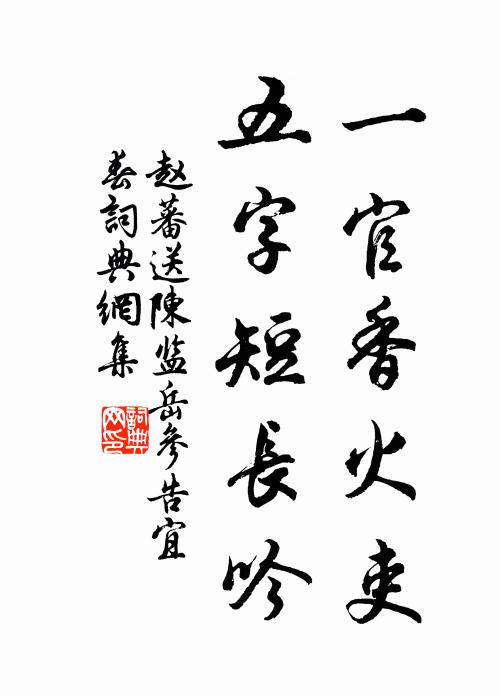 一官香火吏
五字短長吟
赵蕃送陳监岳參告宜
春詞典網集
詞典网印